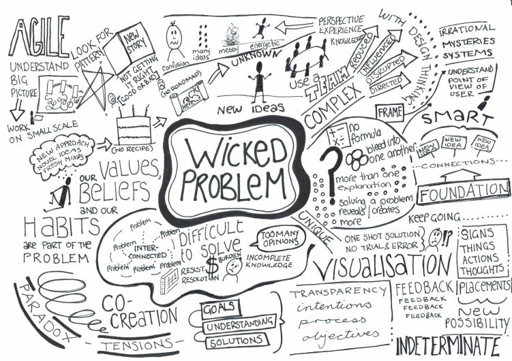 AGILE
UNDERSTAND
BIG
PICTURE
WORK
ON SMALL SCALE
LOOK FOR
PATTERNS
NEW
STORY
NOT GETTING
IT RIGHT
GOOD OR BAD
(NO RECIPE)
NEW APPROACH
NOVEL IDEAS
FRESH MINDS
OUR
VALUES,
BELIEFS
AND OUR
HABITS
ARE PART OF THE
PROBLEM
PARADOX
CO-
CREATION
TENSIONS
confusion
ideas
many
ideas
messy
energetic
UNKNOWN
NEW IDEAS
PERSPECTIVE
EXPERIENCE
KNOWLEDGE
use a
TEAM
COMPLEX
WITH DESIGN THINKING
DISRUPTED
DIRECTED
IRRATIONAL
MYSTERIES
SYSTEMS
UNDERSTAND
POINT OF
VIEW OF
USER
SMART
FRAME
NEW
IDEA
NEW
IDEA
CONNECTIONS
FOUNDATION
WICKED
PROBLEM
no
formula
bleed into
one another
?
more than one
explanation
solving a problem
reveals/creates
more
UNIQUE
KEEP GOING....
ONE SHOT SOLUTION
NO TRIAL & ERROR
?!
Problem
Problem
Problem
Problem
INTER-
CONNECTED
Problem
Problem
Problem
DIFFICULT
to solve
RESIST
RESOLUTION
$
BURDEN
TOO MANY
OPINIONS
INCOMPLETE
KNOWLEDGE
GOALS
UNDERSTANDING
SOLUTIONS
VISUALISATION
TRANSPARENCY
intentions
process
objectives
FEEDBACK
FEEDBACK
FEEDBACK
FEEDBACK
SIGNS
THINGS
ACTIONS
THOUGHTS
PLACEMENTS
NEW
POSSIBILITY
INDETERMINATE